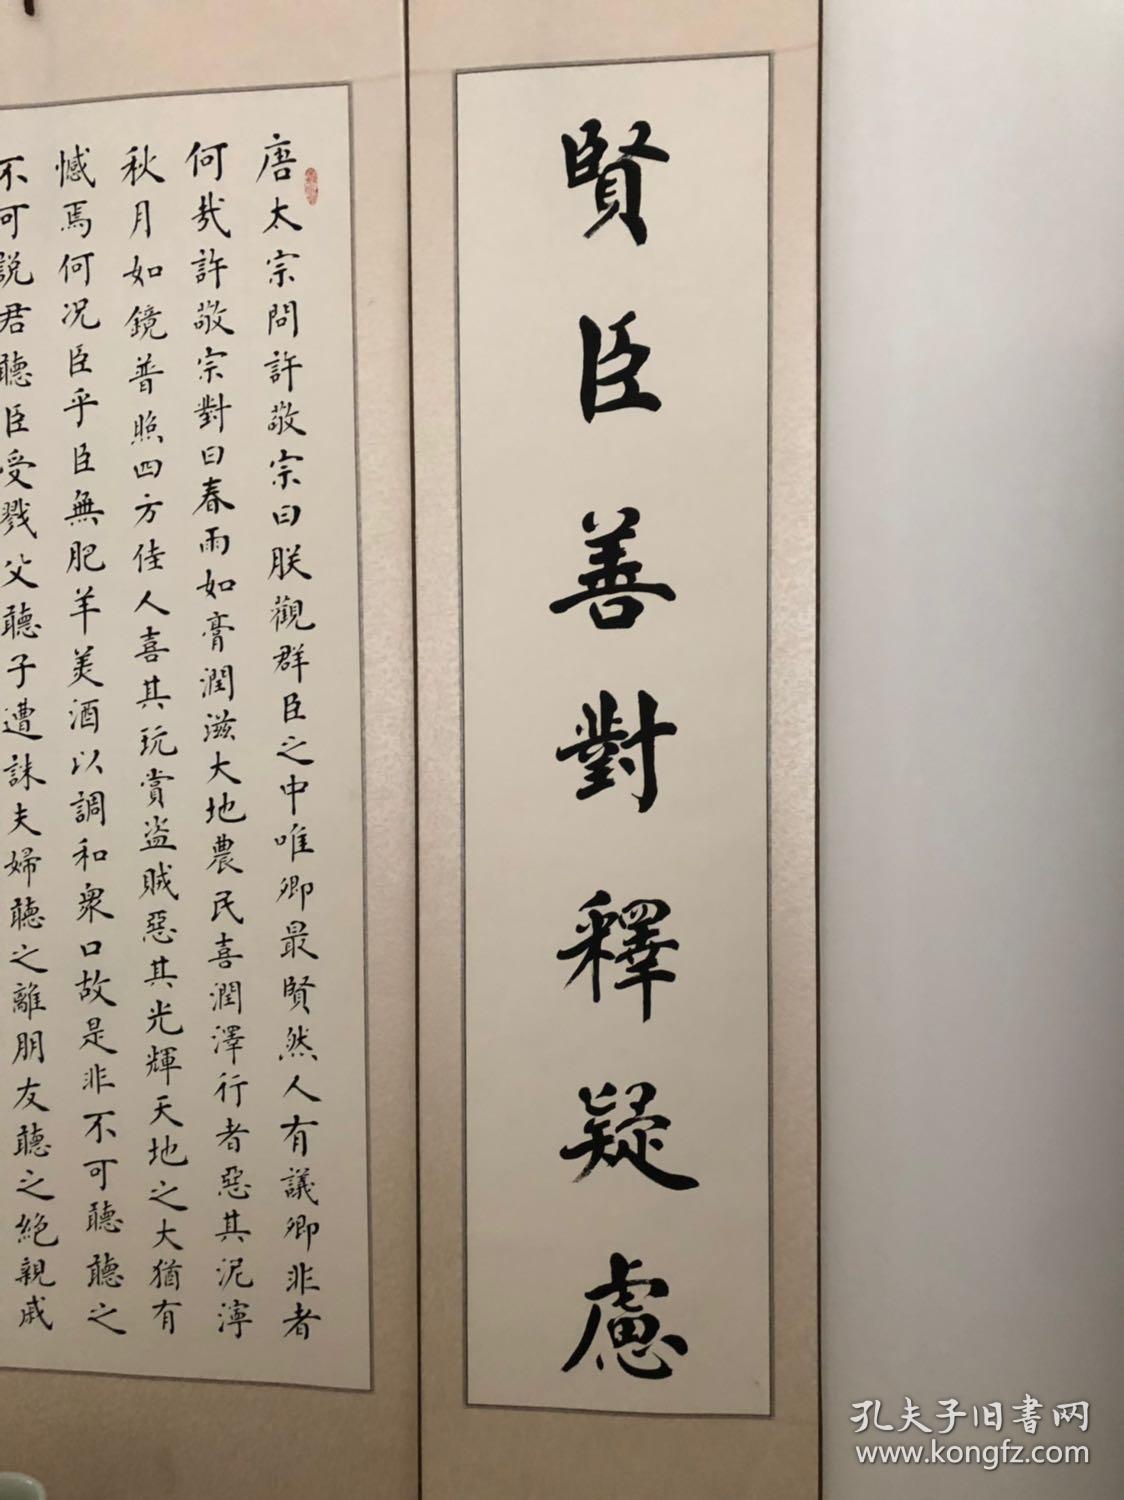 賢臣善對釋疑慮
唐太宗問許敬宗曰朕觀群臣之中唯卿最賢然人有議卿非者
何哉許敬宗對曰春雨如膏潤滋大地農民喜潤澤行者惡其泥濘
秋月如鏡普照四方佳人喜其玩賞盜賊惡其光輝天地之大猶有
憾焉何況臣乎臣無肥羊美酒以調和衆口故是非不可聽聽之
不可說君聽臣受戮父聽子遭誅夫婦聽之離朋友聽之絕親戚
孔夫子旧书网
www.kongfz.com